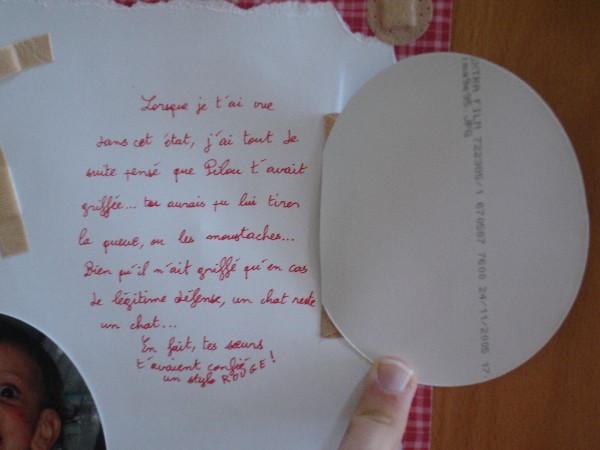 Lorsque je t'ai vue
dans cet état, j'ai tout de
suite pensé que Pilou t'avait
griffée... tu aurais pu lui tirer
la queue, ou les moustaches...
Bien qu'il n'ait griffé qu'en cas
de légitime défense, un chat reste
un chat...
En fait, tes sœurs
t'avaient confié
un stylo ROUGE!
EXTRA FILM 722305/1 670587 7600 24/11/2005 17